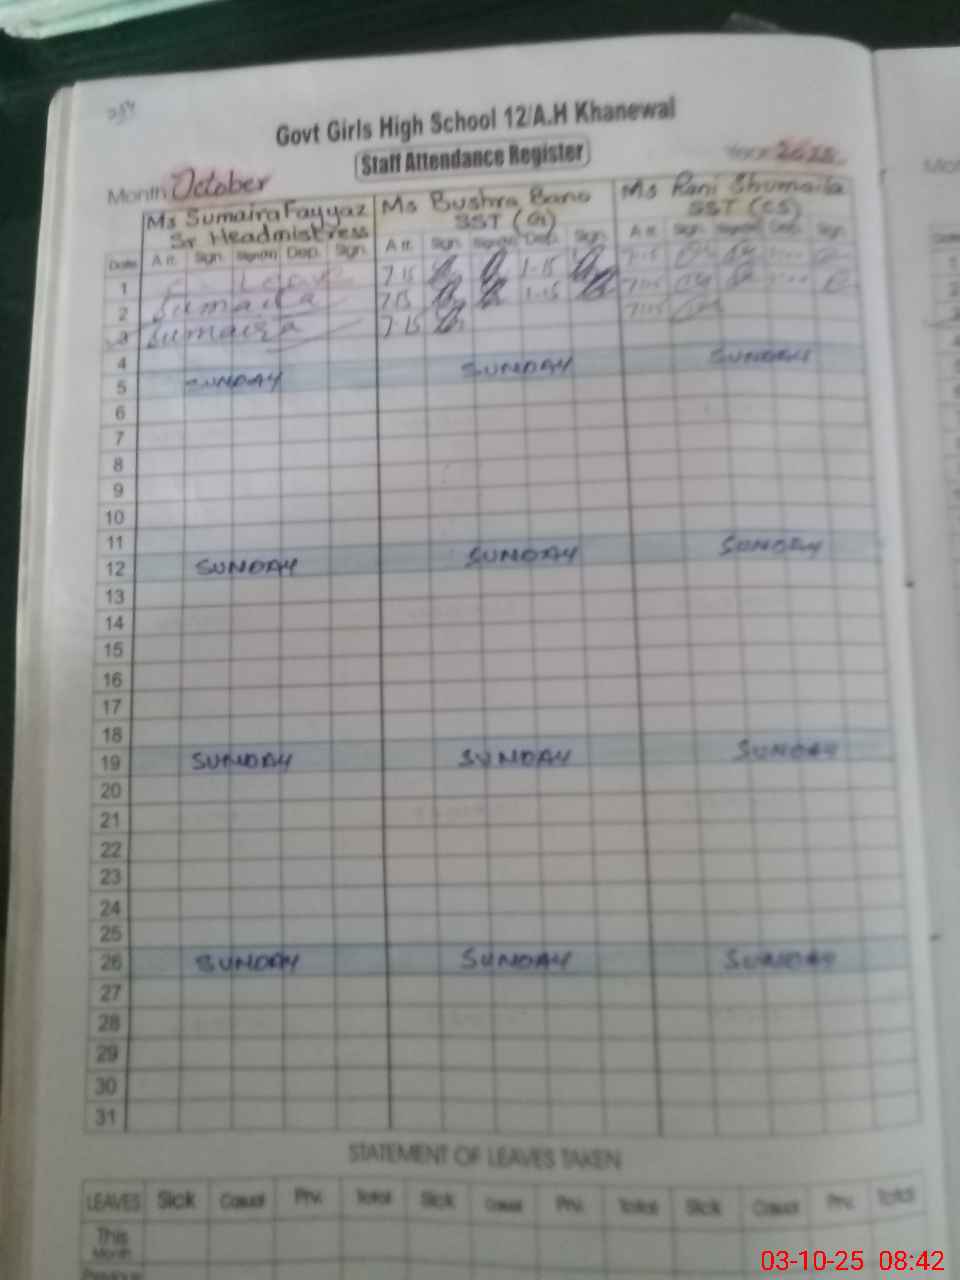 Govt Girls High School 12/A.H Khanewal
Staff Attendance Register
Month October Year 2025
Ms Sumaira Fayyaz Ms Bushra Bano Ms Rani Shumaila
Sr Headmistress SST (G) SST (CS)
Date Arr. Sign. Sign(H) Dep. Sign. Arr. Sign. Sign(H) Dep. Sign. Arr. Sign. Sign(H) Dep. Sign.
1 Leave 7-15 1-15 7-15
2 Sumaira 7-15 1-15 7-15
3 Sumaira 7-15 7-15
4
5 SUNDAY SUNDAY SUNDAY
6
7
8
9
10
11
12 SUNDAY SUNDAY SUNDAY
13
14
15
16
17
18
19 SUNDAY SUNDAY SUNDAY
20
21
22
23
24
25
26 SUNDAY SUNDAY SUNDAY
27
28
29
30
31
STATEMENT OF LEAVES TAKEN
LEAVES Sick Casual Priv. Total Sick Casual Priv. Total Sick Casual Priv. Total
This
Month
Previous
03-10-25 08:42